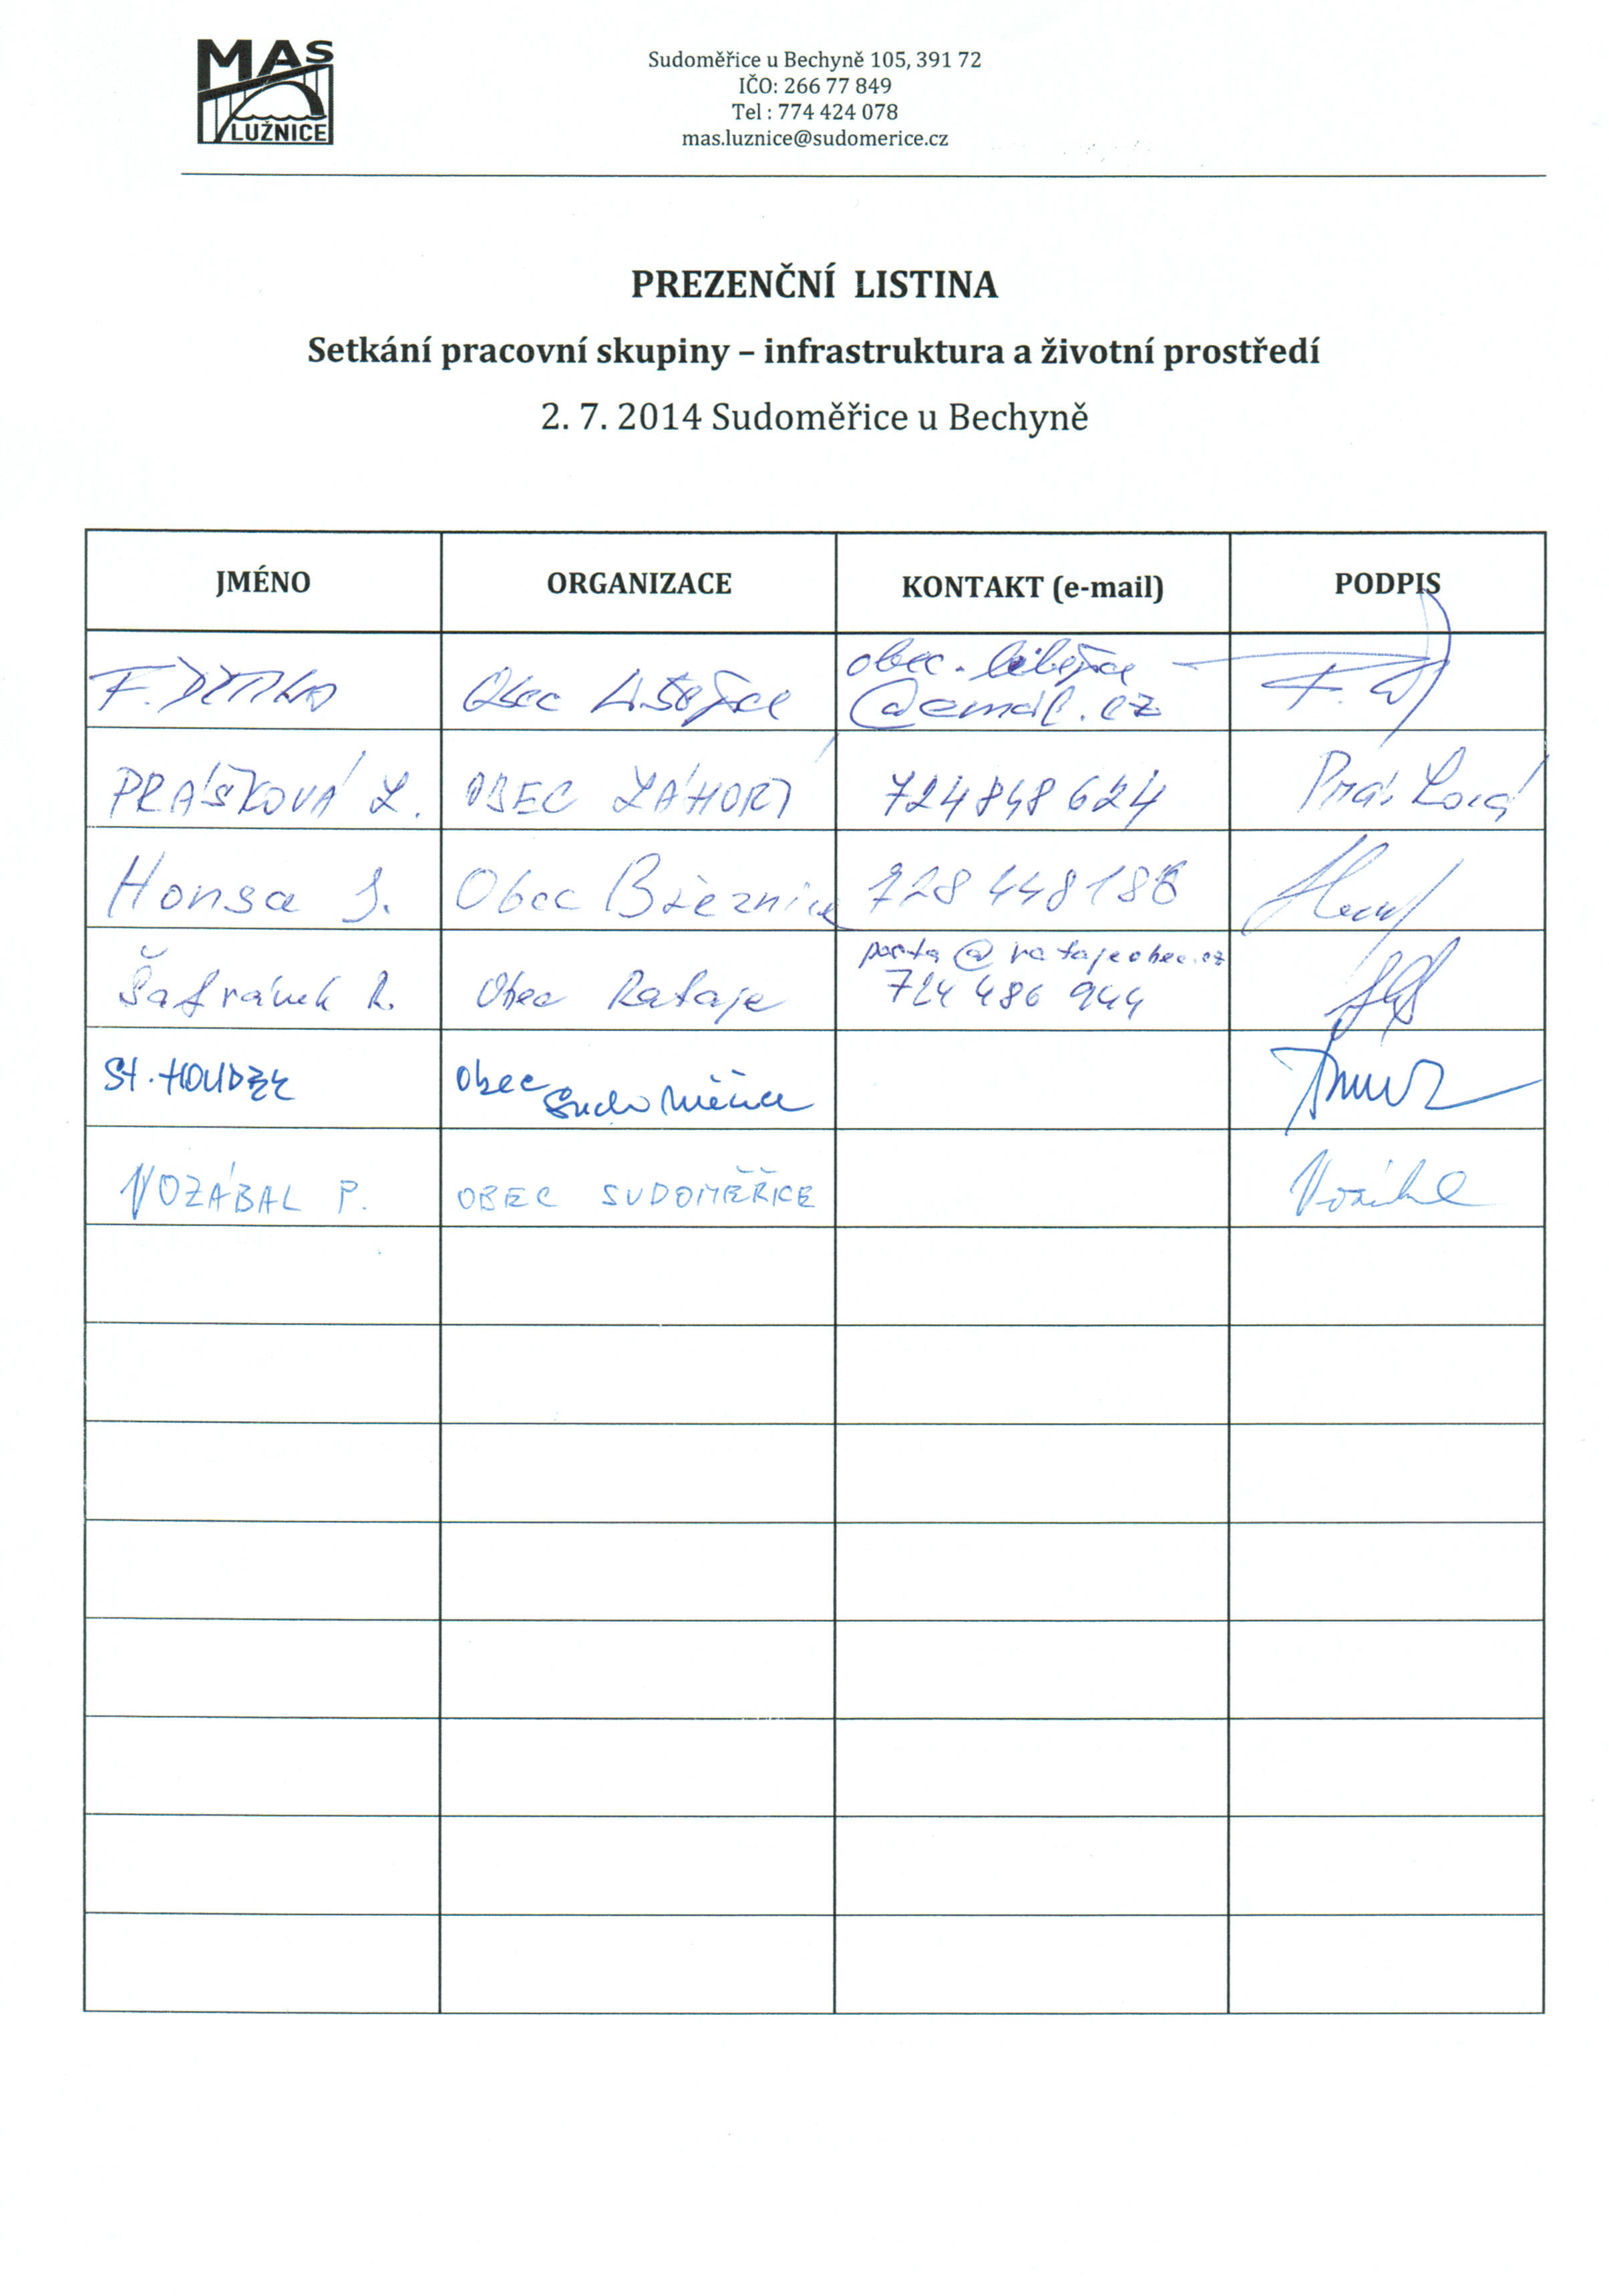 MAS
LUŽNICE
Sudoměřice u Bechyně 105, 391 72
IČO: 266 77 849
Tel : 774 424 078
mas.luznice@sudomerice.cz
PREZENČNÍ LISTINA
Setkání pracovní skupiny – infrastruktura a životní prostředí
2. 7. 2014 Sudoměřice u Bechyně
JMÉNO ORGANIZACE KONTAKT (e-mail) PODPIS
F. Obec obec.libejice
@email.cz
PRÁŠKOVÁ L. OBEC ZÁHOŘÍ 724 848 624 Prášková
Honsa J. Obec Březnice 728 448 186
Šafránek R. Obec Rataje posta@ratajeobec.cz
724 486 944
St. HOUDEK Obec
Sudoměřice
VOZÁBAL P. OBEC SUDOMĚŘICE